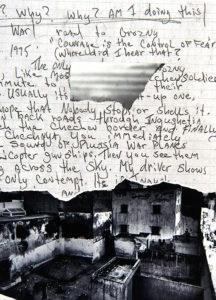 ? Why? Why? AM I doing this
WAR road to Grozny
1995 "Courage is the Control of FEAR
(Where did I hear that?
The only
Like Mos soldier
minute to their
Usually it's up one,
hope that Nobody stops or shells it.
back roads through Ingushetia
the Chechen border and FINALLY
Chechnya. You immediately
Squad of Russia WAR planes
copter gunships. Then you see them
across the sky. My driver shows
only contempt. It's
An